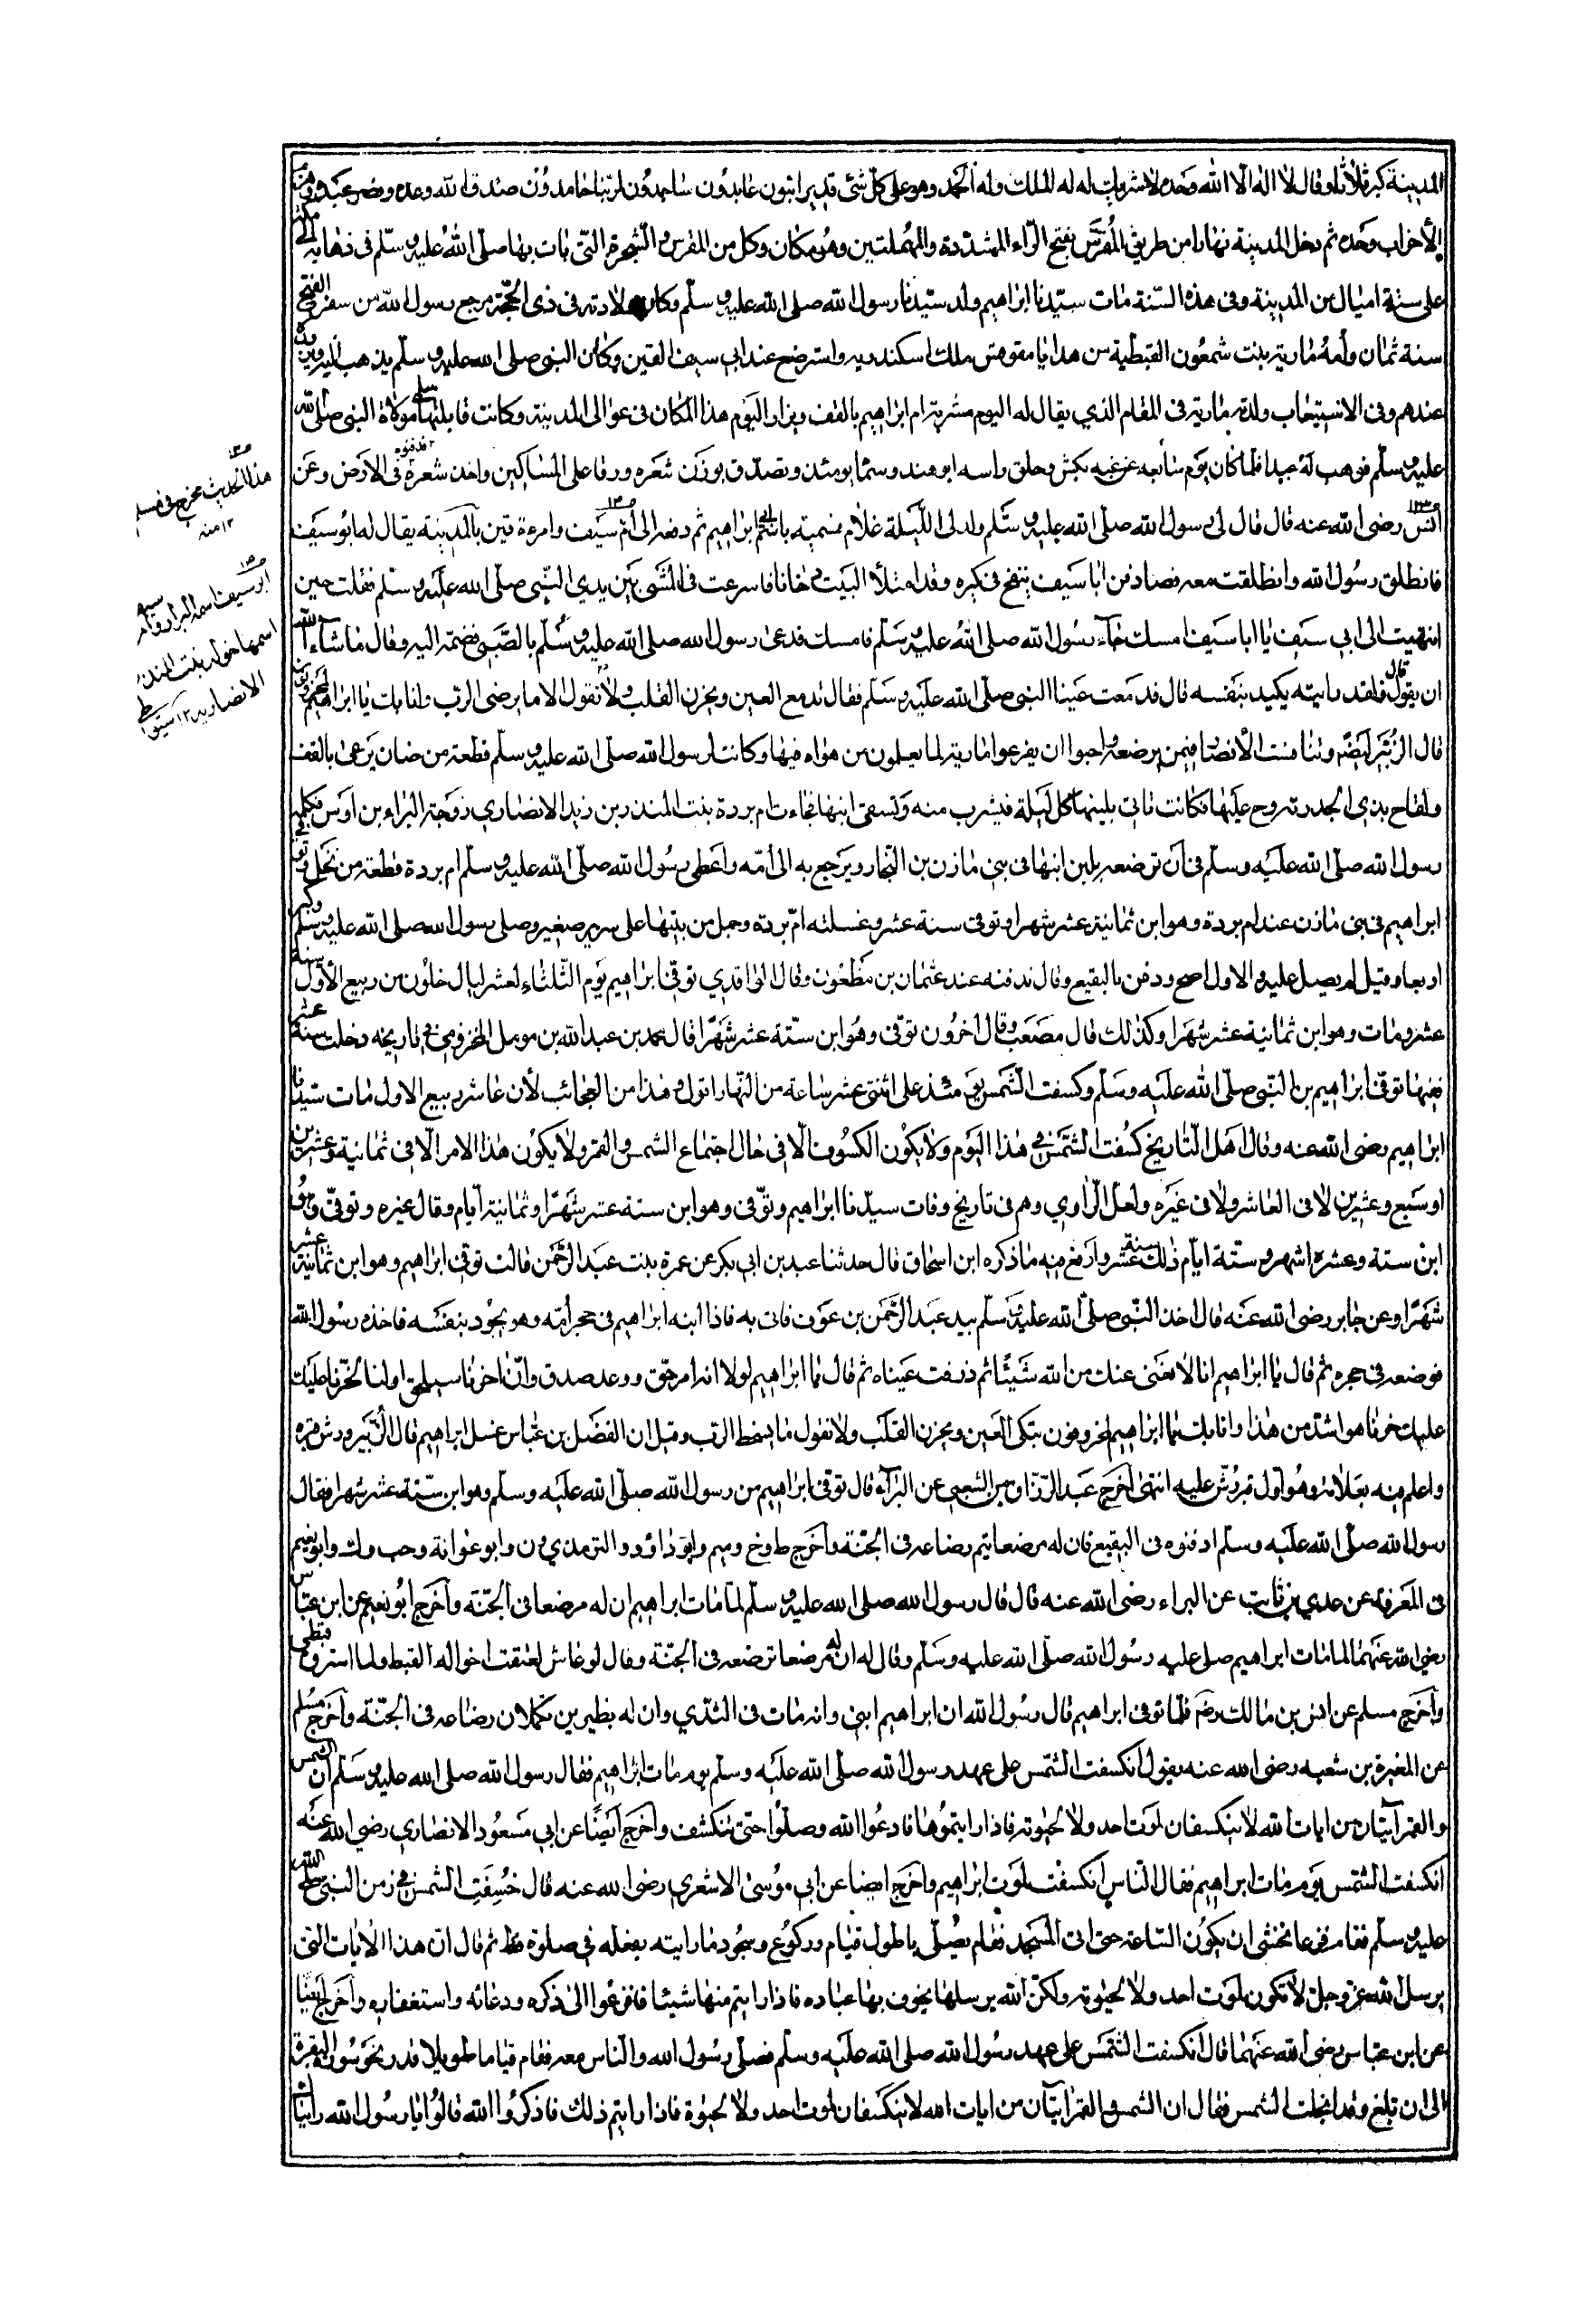 المدينة كبر ثلاثا وقال لا اله الا الله وحده لا شريك له له الملك وله الحمد وهو على كل شئ قدير ائبون عابدون ساجدون لربنا حامدون صدق الله وعده ونصر عبده وهزم
الأحزاب وحده ثم دخل المدينة نهارا من طريق المعرس بفتح الراء المشددة والمهملتين وهو مكان وكل من المعرس والشجرة التي بات بها صلى الله عليه وسلم في ذهابه الى مكة
على ستة اميال من المدينة وفى هذه السنة مات سيدنا ابراهيم ولد سيدنا رسول الله صلى الله عليه وسلم وكان ولادته فى ذى الحجة مرجع رسول الله من سفر الفتح
سنة ثمان وأمه مارية بنت شمعون القبطية من هدايا مقوقس ملك اسكندريه واسترضع عند ابى سيف القين وكان النبى صلى الله عليه وسلم يذهب اليه
عندهم وفى الاستيعاب ولدته مارية فى المقام الذي يقال له اليوم مشربة ام ابراهيم بالقف ويزار اليوم هذا المكان فى عوالى المدينة وكانت قابلتها سلمى مولاة النبى صلى الله
عليه وسلم فوهب له عبدا فلما كان يوم سابعه عق عنه بكبش وحلق راسه ابو هند وسما يومئذ وتصدق بوزن شعره ورقا على المساكين واخذ شعره فدفنوه فى الارض وعن
انس رضى الله عنه قال قال لى رسول الله صلى الله عليه وسلم ولد لى الليلة غلام فسميته باسم ابى ابراهيم ثم دفعه الى ام سيف وامرءة قين بالمدينة يقال له ابو سيف
فانطلق رسول الله وانطلقت معه فصادفن ابا سيف ينفخ فى كيره وقد امتلأ البيت دخانا فاسرعت فى المشى بين يدي النبى صلى الله عليه وسلم فقلت حين
انتهيت الى ابى سيف يا ابا سيف امسك جاء رسول الله صلى الله عليه وسلم فامسك فدعى رسول الله صلى الله عليه وسلم بالصبى فضمه اليه وقال ما شاء الله
ان يقول قال فلقد رايته يكيد بنفسه قال فدمعت عينا النبى صلى الله عليه وسلم فقال تدمع العين ويحزن القلب ولا نقول الا ما يرضى الرب وانا بك يا ابراهيم لمحزونون
قال الزبير ايضا وتنافست الأنصار فيمن يرضعه واحبوا ان يفرغوا مارية لما يعلمون من هواه فيها وكانت لرسول الله صلى الله عليه وسلم قطعة من ضان يرعى بالقف
ولقاح بذي الجدر تروح عليها فكانت تاتى بلبنها كل ليلة فيشرب منه وتسقى ابنها فجاءت ام بردة بنت المنذر بن زيد الانصاري زوجة البراء بن اوس فكلمت
رسول الله صلى الله عليه وسلم فى أن ترضعه بلبن ابنها فى بنى مازن بن النجار ويرجع به الى أمه واعطى رسول الله صلى الله عليه وسلم ام بردة قطعة من نخل
ابراهيم فى بنى مازن عند ام بردة وهو ابن ثمانية عشر شهرا وتوفى سنة عشر وغسلته ام بردة وحمل من بيتها على سرير صغير وصلى رسول الله صلى الله عليه وسلم وكبر
اربعا وقيل لم يصل عليه والاول اصح ودفن بالبقيع وقال ندفنه عند عثمان بن مظعون وقال الواقدي توفى ابراهيم يوم الثلثاء لعشر ليال خلون من ربيع الأول سنة
عشر ومات وهو ابن ثمانية عشر شهرا وكذلك قال مصعب وقال اخرون توفى وهو ابن ستة عشر شهرا قال محمد بن عبد الله بن مومل المخزومى فى تاريخه دخلت سنة عشر
ففيها توفى ابراهيم بن النبى صلى الله عليه وسلم وكسفت الشمس يومئذ على اثنتى عشر ساعة من النهار اقول وهذا من العجائب لأن عاشر ربيع الاول مات سيدنا
ابراهيم رضى الله عنه وقال اهل التاريخ كسفت الشمس فى هذا اليوم ولا يكون الكسوف الا فى حال اجتماع الشمس والقمر ولا يكون هذا الامر الا فى ثمانية وعشرين
او سبع وعشرين لا فى العاشر ولا فى غيره ولعل الراوي وهم فى تاريخ وفات سيدنا ابراهيم وتوفى وهو ابن ستة عشر شهرا وثمانية ايام وقال غيره وتوفى وهو
ابن ستة وعشرة اشهر وستة ايام ذلك سنة عشر وارفع منه ما ذكره ابن اسحاق قال حدثنا عبد بن ابى بكر عن عمرة بنت عبد الرحمن قالت توفى ابراهيم وهو ابن ثمانية عشر
شهرا وعن جابر رضى الله عنه قال اخذ النبى صلى الله عليه وسلم بيد عبد الرحمن بن عوف فاتى به فاذا ابنه ابراهيم فى حجر أمه وهو يجود بنفسه فاخذه رسول الله
فوضعه فى حجره ثم قال يا ابراهيم انا لا نغنى عنك من الله شيئا ثم ذرفت عيناه ثم قال يا ابراهيم لولا انه امر حق ووعد صدق وان اخرنا سيلحق اولنا لحزنا عليك
عليك حزنا هو اشد من هذا وانا بك يا ابراهيم لمحزونون تبكى العين ويحزن القلب ولا نقول ما يسخط الرب وقيل ان الفضل بن عباس غسل ابراهيم قال الزبير ورش قبره
واعلم فيه بعلامة وهو اول قبر رش عليه انتهى اخرج عبد الرزاق عن الشعبى عن البراء قال توفى ابراهيم بن رسول الله صلى الله عليه وسلم وهو ابن ستة عشر شهرا فقال
رسول الله صلى الله عليه وسلم ادفنوه فى البقيع فان له مرضعا يتم رضاعه فى الجنة واخرج ط وخ وميم وابو داؤد والترمذي ون وابو عوانة وحب وك وابو نعيم
فى المعرفة عن عدي بن ثابت عن البراء رضى الله عنه قال قال رسول الله صلى الله عليه وسلم لما مات ابراهيم ان له مرضعا فى الجنة واخرج ابو نعيم عن ابن عباس
رضى الله عنهما لما مات ابراهيم صلى عليه رسول الله صلى الله عليه وسلم وقال له ان له مرضعا ترضعه فى الجنة وقال لو عاش لعتقت اخواله القبط ولما استرق قبطى
واخرج مسلم عن انس بن مالك رضه فلما توفى ابراهيم قال رسول الله ان ابراهيم ابنى وانه مات فى الثدي وان له بظيرين تكملان رضاعه فى الجنة واخرج مسلم
عن المغيرة بن شعبه رضى الله عنه يقول انكسفت الشمس على عهد رسول الله صلى الله عليه وسلم يوم مات ابراهيم فقال رسول الله صلى الله عليه وسلم ان الشمس
والقمر آيتان من ايات الله لا ينكسفان لموت احد ولا لحيوته فاذا رايتموها فادعوا الله وصلوا حتى تنكشف واخرج ايضا عن ابى مسعود الانصاري رضى الله عنه
انكسفت الشمس يوم مات ابراهيم فقال الناس انكسفت لموت ابراهيم واخرج ايضا عن ابى موسى الاشعري رضى الله عنه قال خسفت الشمس فى زمن النبى صلى الله
عليه وسلم فقام فزعا يخشى ان يكون الساعة حتى اتى المسجد فقام يصلى باطول قيام وركوع وسجود ما رايته يفعله فى صلوة قط ثم قال ان هذا الايات التى
يرسل الله عز وجل لا تكون لموت احد ولا لحيوته ولكن الله يرسلها يخوف بها عباده فاذا رايتم منها شيئا فافزعوا الى ذكره ودعائه واستغفاره واخرج ايضا
عن ابن عباس رضى الله عنهما قال انكسفت الشمس على عهد رسول الله صلى الله عليه وسلم فصلى رسول الله والناس معه فقام قياما طويلا قدر نحو سورة البقرة
الى ان تبلغ وقد انجلت الشمس فقال ان الشمس والقمر ايتان من ايات الله لا ينكسفان لموت احد ولا لحيوة فاذا رايتم ذلك فاذكروا الله قالوا يا رسول الله رايناك
هذا الحديث مخرج فى مسلم
١٢ منه
ابو سيف اسمه البراء وام سيف
اسمها خوله بنت المنذر
الانصاريه ١٢ سيوطى